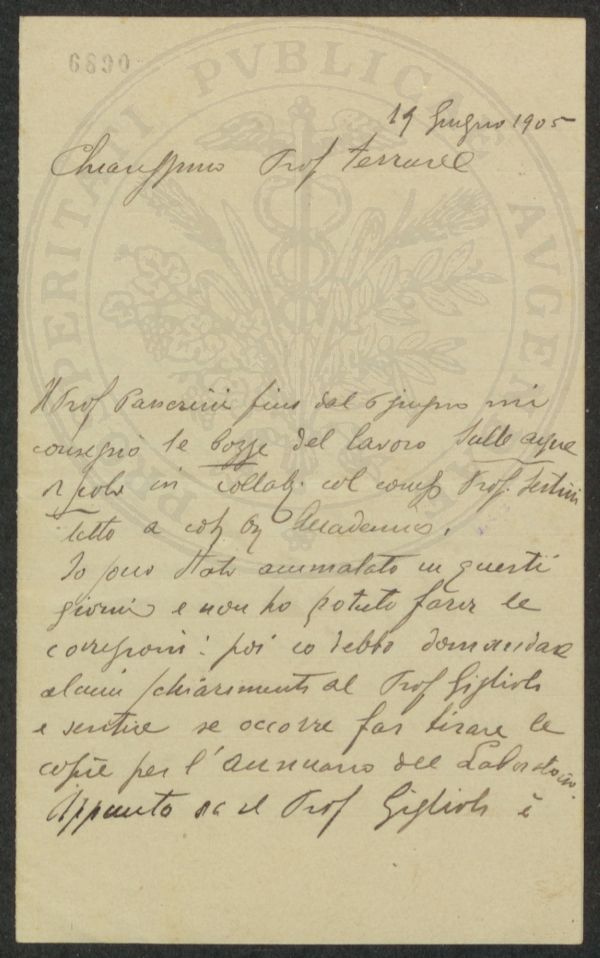 6890
PROSPERITATI PVBLICAE AVGENDAE
19 Giugno 1905
Chiarissimo Prof
Il Prof fino dal 6 giugno mi
consegnò le bozze del lavoro Sulle acque
in collab. col comp Prof. Sestini
letto a Accademia.
Io sono stato ammalato in questi
giorni e non ho potuto farne le
correzioni: poi io debbo domandare
alcuni schiarimenti al Prof Giglioli
e sentire se occorre far tirare le
copie per l'annuario del Laboratorio.
Appunto il Prof Giglioli è